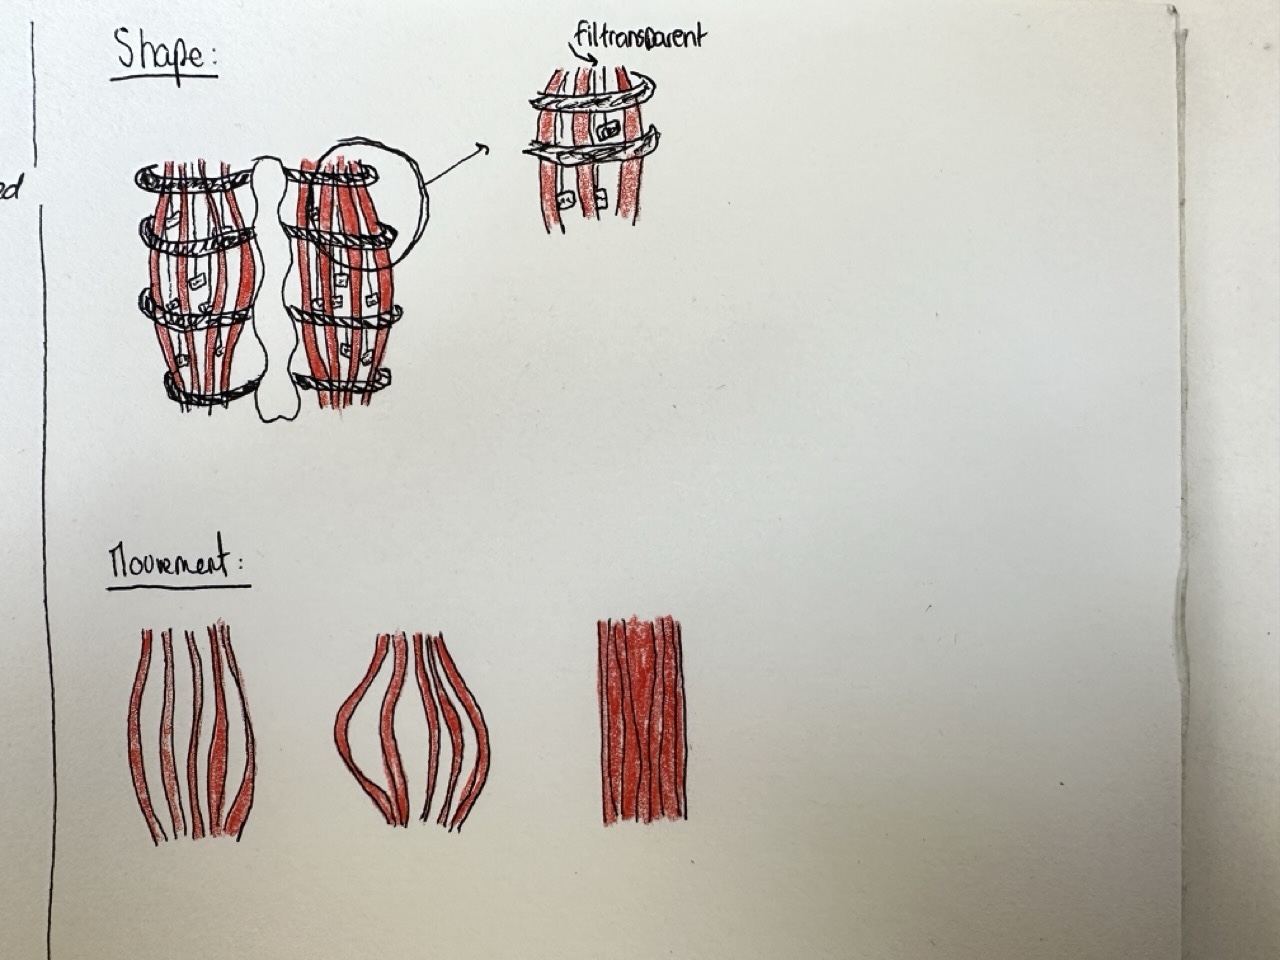 Shape:
filtransparent
ed
Mouvement: